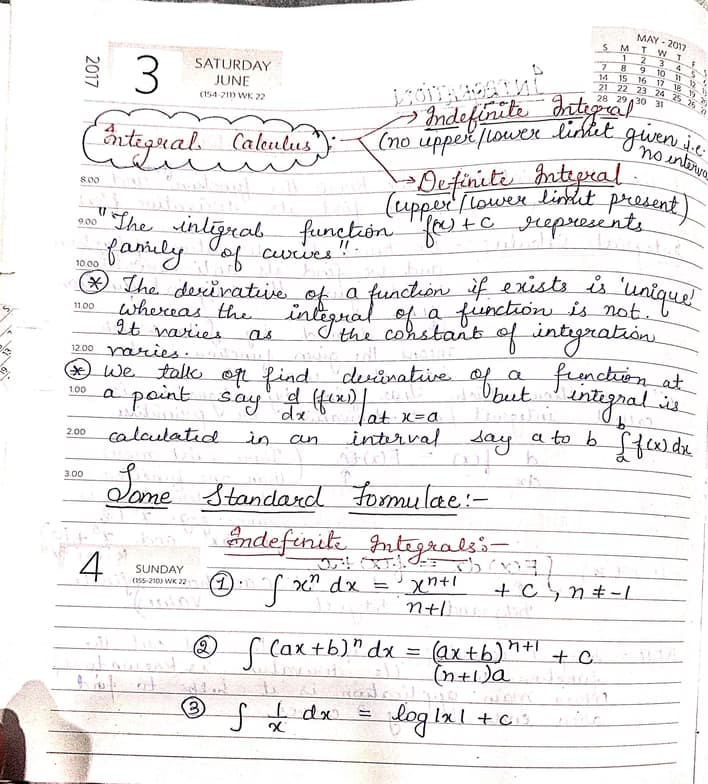 MAY - 2017
S M T W T F
1 2 3 4 5
7 8 9 10 11 12
14 15 16 17 18 19
21 22 23 24 25 26
28 29 30 31
2017
3
SATURDAY
JUNE
(154-211) WK 22
Integral Calculus :-
→ Indefinite Integral
(no upper/lower limit given i.e.
no interva
→ Definite Integral
(upper/lower limit present)
8.00
9.00 "The integral function f(x) + c represents
family of curves".
10.00
* The derivative of a function if exists is 'unique'
11.00 whereas the integral of a function is not.
It varies as the constant of integration
12.00 varies.
* We talk or find derivative of a function at
1.00 a point say d/dx (f(x))| at x=a but integral is
2.00 calculated in an interval say a to b ∫ₐᵇ f(x) dx
3.00
Some Standard Formulae:-
Indefinite Integrals:-
4
SUNDAY
(155-210) WK 22
① ∫ xⁿ dx = xⁿ⁺¹/n+1 + c, n ≠ -1
② ∫ (ax+b)ⁿ dx = (ax+b)ⁿ⁺¹/(n+1)a + c
③ ∫ 1/x dx = log|x| + c